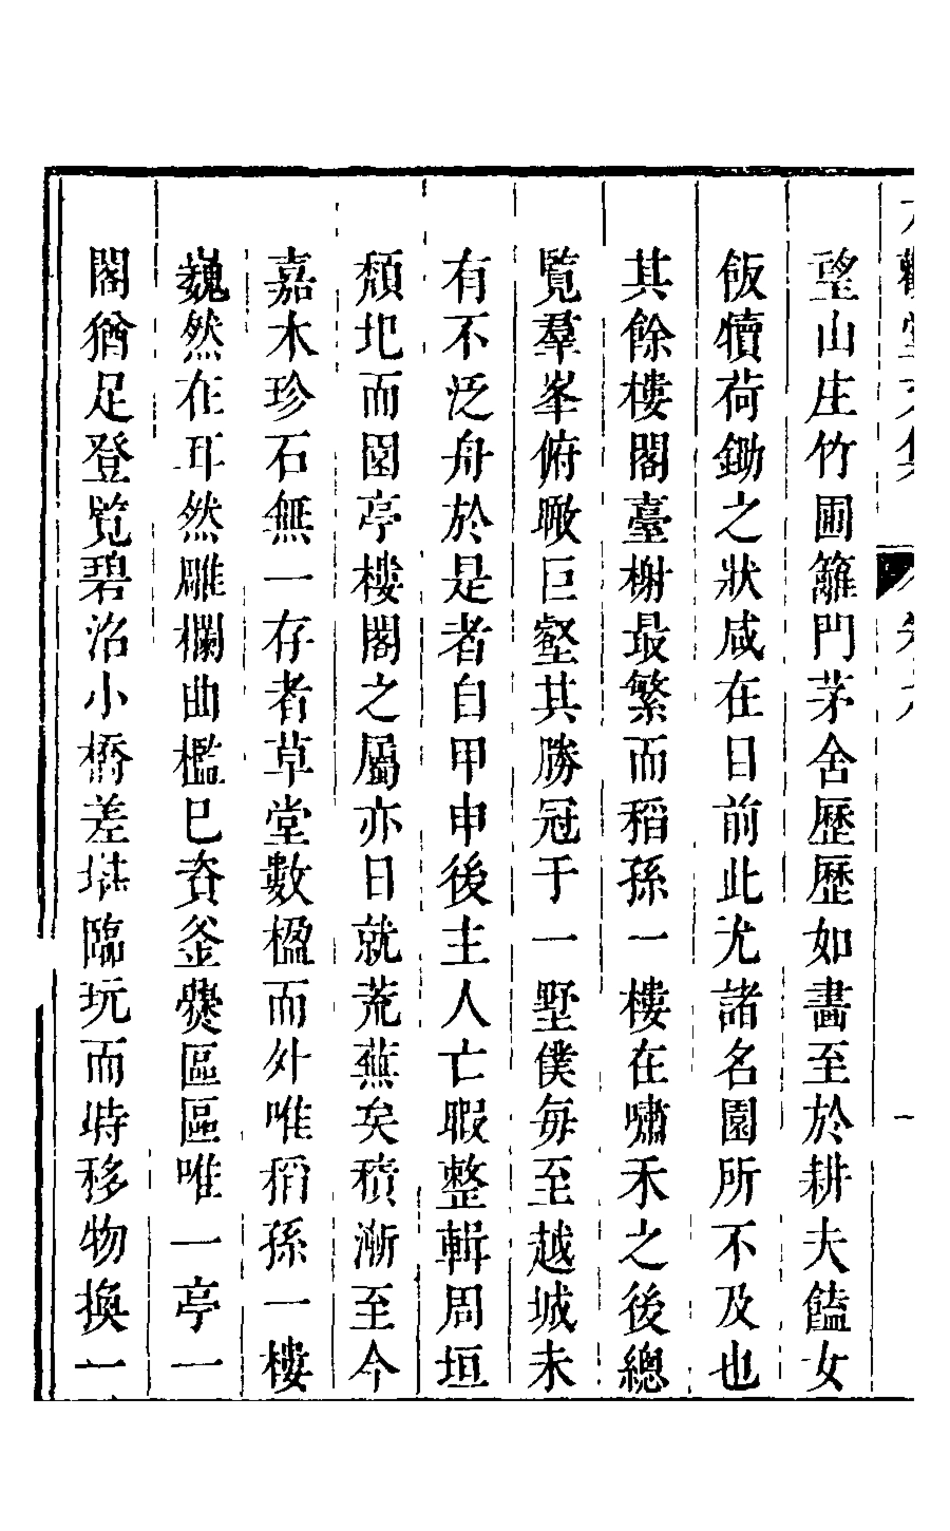 望山庄竹圃籬門茅舍歷歷如畵至於耕夫饁女
飯犢荷鋤之狀咸在目前此尤諸名園所不及也
其餘樓閣臺榭最繁而稻孫一樓在嘯禾之後總
覧羣峯俯瞰巨壑其勝冠于一墅僕每至越城未
有不泛舟於是者自甲申後主人亡暇整輯周垣
頽圯而園亭樓閣之屬亦日就荒蕪矣積漸至今
嘉木珍石無一存者草堂數楹而外唯稻孫一樓
巍然在耳然雕欄曲檻已資釜爨區區唯一亭一
閣猶足登覧碧沼小橋差堪臨玩而時移物換一